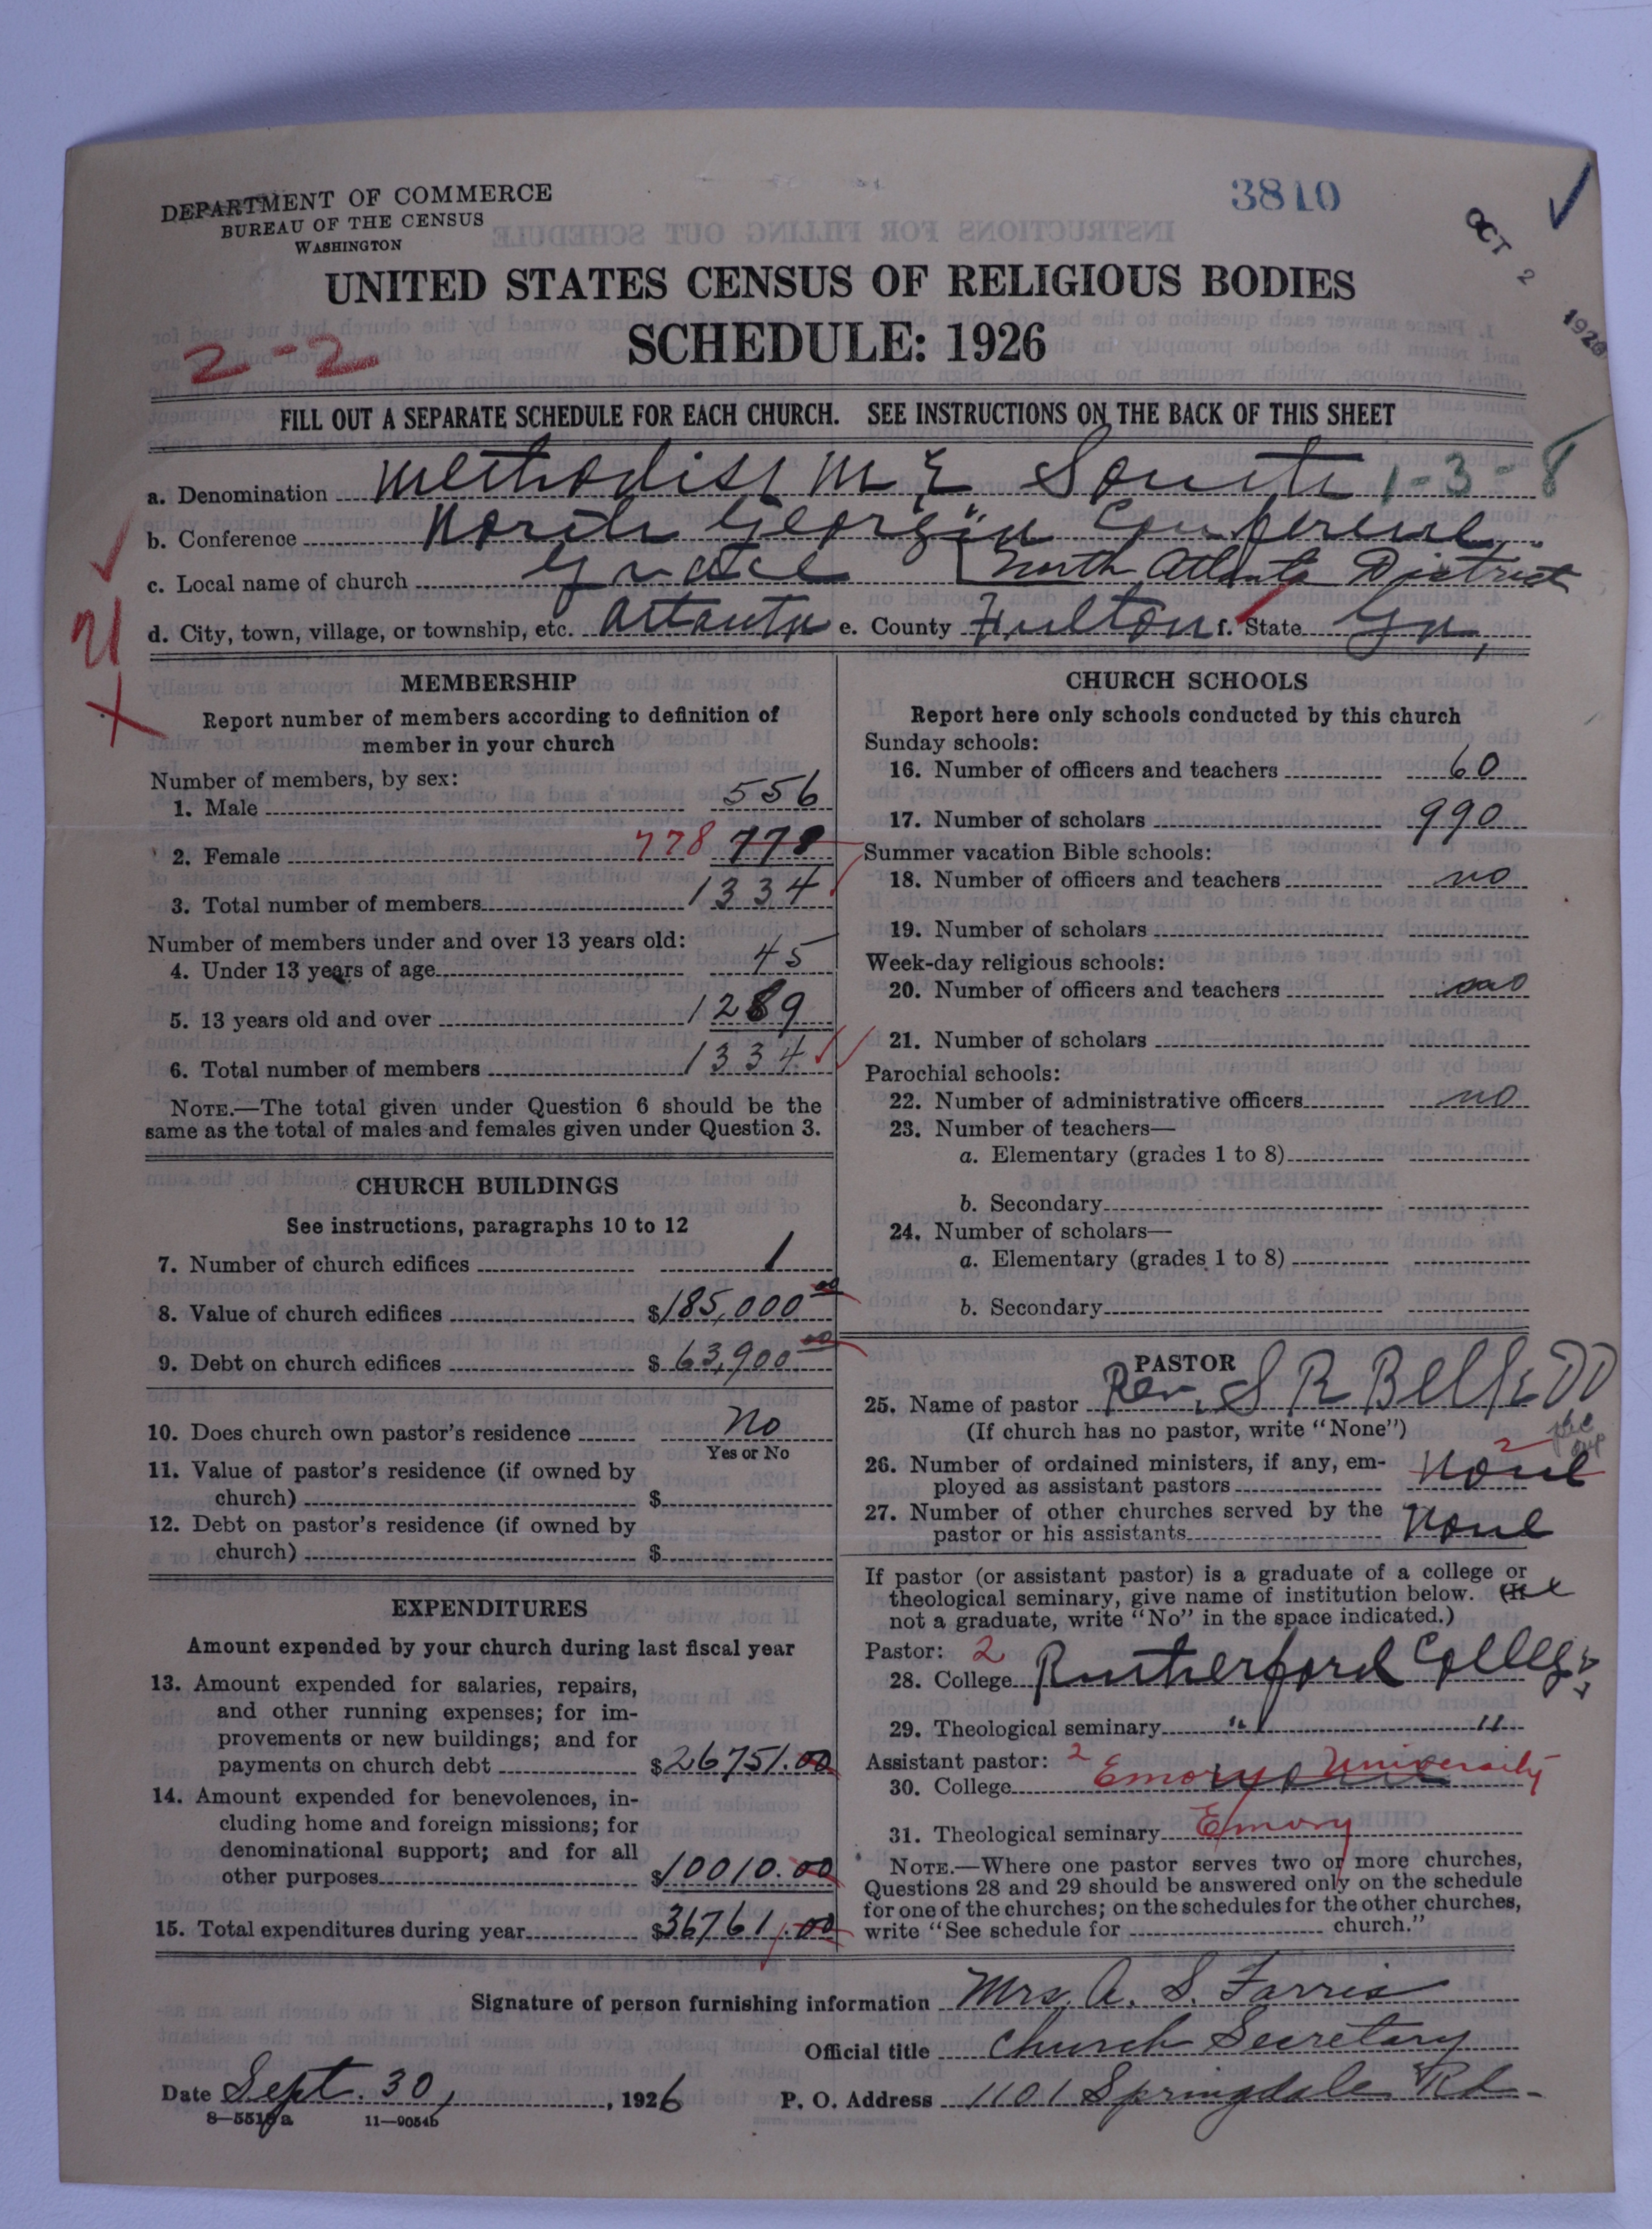 DEPARTMENT OF COMMERCE
BUREAU OF THE CENSUS
WASHINGTON
3810
OCT 2 1926
UNITED STATES CENSUS OF RELIGIOUS BODIES
SCHEDULE: 1926
2-2
FILL OUT A SEPARATE SCHEDULE FOR EACH CHURCH. SEE INSTRUCTIONS ON THE BACK OF THIS SHEET
a. Denomination Methodist M E South 1-3-8
b. Conference North Georgia Conference
c. Local name of church Grace North Atlanta District
d. City, town, village, or township, etc. Atlanta e. County Fulton f. State Ga,
MEMBERSHIP
Report number of members according to definition of
member in your church
Number of members, by sex:
1. Male 556
2. Female 778 778
3. Total number of members 1334
Number of members under and over 13 years old:
4. Under 13 years of age 45
5. 13 years old and over 1289
6. Total number of members 1334
NOTE.—The total given under Question 6 should be the
same as the total of males and females given under Question 3.
CHURCH BUILDINGS
See instructions, paragraphs 10 to 12
7. Number of church edifices 1
8. Value of church edifices $185,000 00
9. Debt on church edifices $ 63,900 00
10. Does church own pastor's residence No
Yes or No
11. Value of pastor's residence (if owned by
church) $
12. Debt on pastor's residence (if owned by
church) $
EXPENDITURES
Amount expended by your church during last fiscal year
13. Amount expended for salaries, repairs,
and other running expenses; for im-
provements or new buildings; and for
payments on church debt $26751.00
14. Amount expended for benevolences, in-
cluding home and foreign missions; for
denominational support; and for all
other purposes $10010.00
15. Total expenditures during year $36761.00
CHURCH SCHOOLS
Report here only schools conducted by this church
Sunday schools:
16. Number of officers and teachers 60
17. Number of scholars 990
Summer vacation Bible schools:
18. Number of officers and teachers no
19. Number of scholars
Week-day religious schools:
20. Number of officers and teachers no
21. Number of scholars
Parochial schools:
22. Number of administrative officers no
23. Number of teachers—
a. Elementary (grades 1 to 8)
b. Secondary
24. Number of scholars—
a. Elementary (grades 1 to 8)
b. Secondary
PASTOR
25. Name of pastor Rev. S R Belk DD
(If church has no pastor, write "None")
26. Number of ordained ministers, if any, em-
ployed as assistant pastors None 2
27. Number of other churches served by the
pastor or his assistants None
If pastor (or assistant pastor) is a graduate of a college or
theological seminary, give name of institution below. (If
not a graduate, write "No" in the space indicated.)
Pastor: 2
28. College Rutherford College
29. Theological seminary " "
Assistant pastor: 2
30. College Emory University
31. Theological seminary Emory
NOTE.—Where one pastor serves two or more churches,
Questions 28 and 29 should be answered only on the schedule
for one of the churches; on the schedules for the other churches,
write "See schedule for church."
Signature of person furnishing information Mrs. A. S. Farris
Official title Church Secretary
Date Sept. 30, 1926 P. O. Address 1101 Springdale Rd.
8—5519a 11—9054b